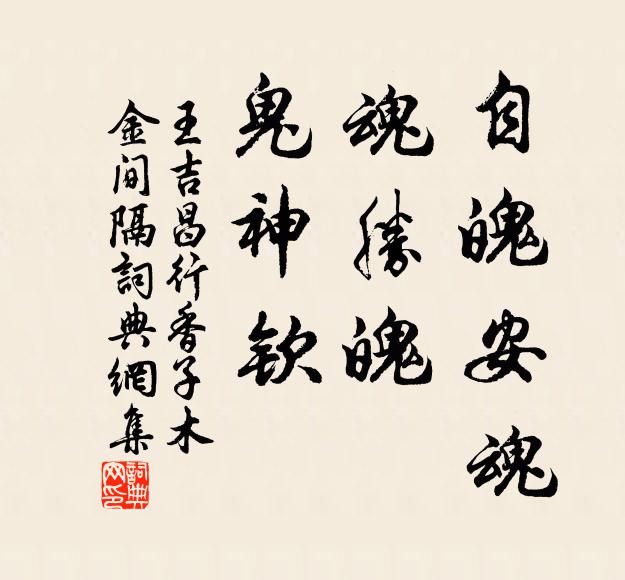 自魄安魂
魂勝魄
鬼神欽
王吉昌行香子木
金间隔詞典網集
詞典网印